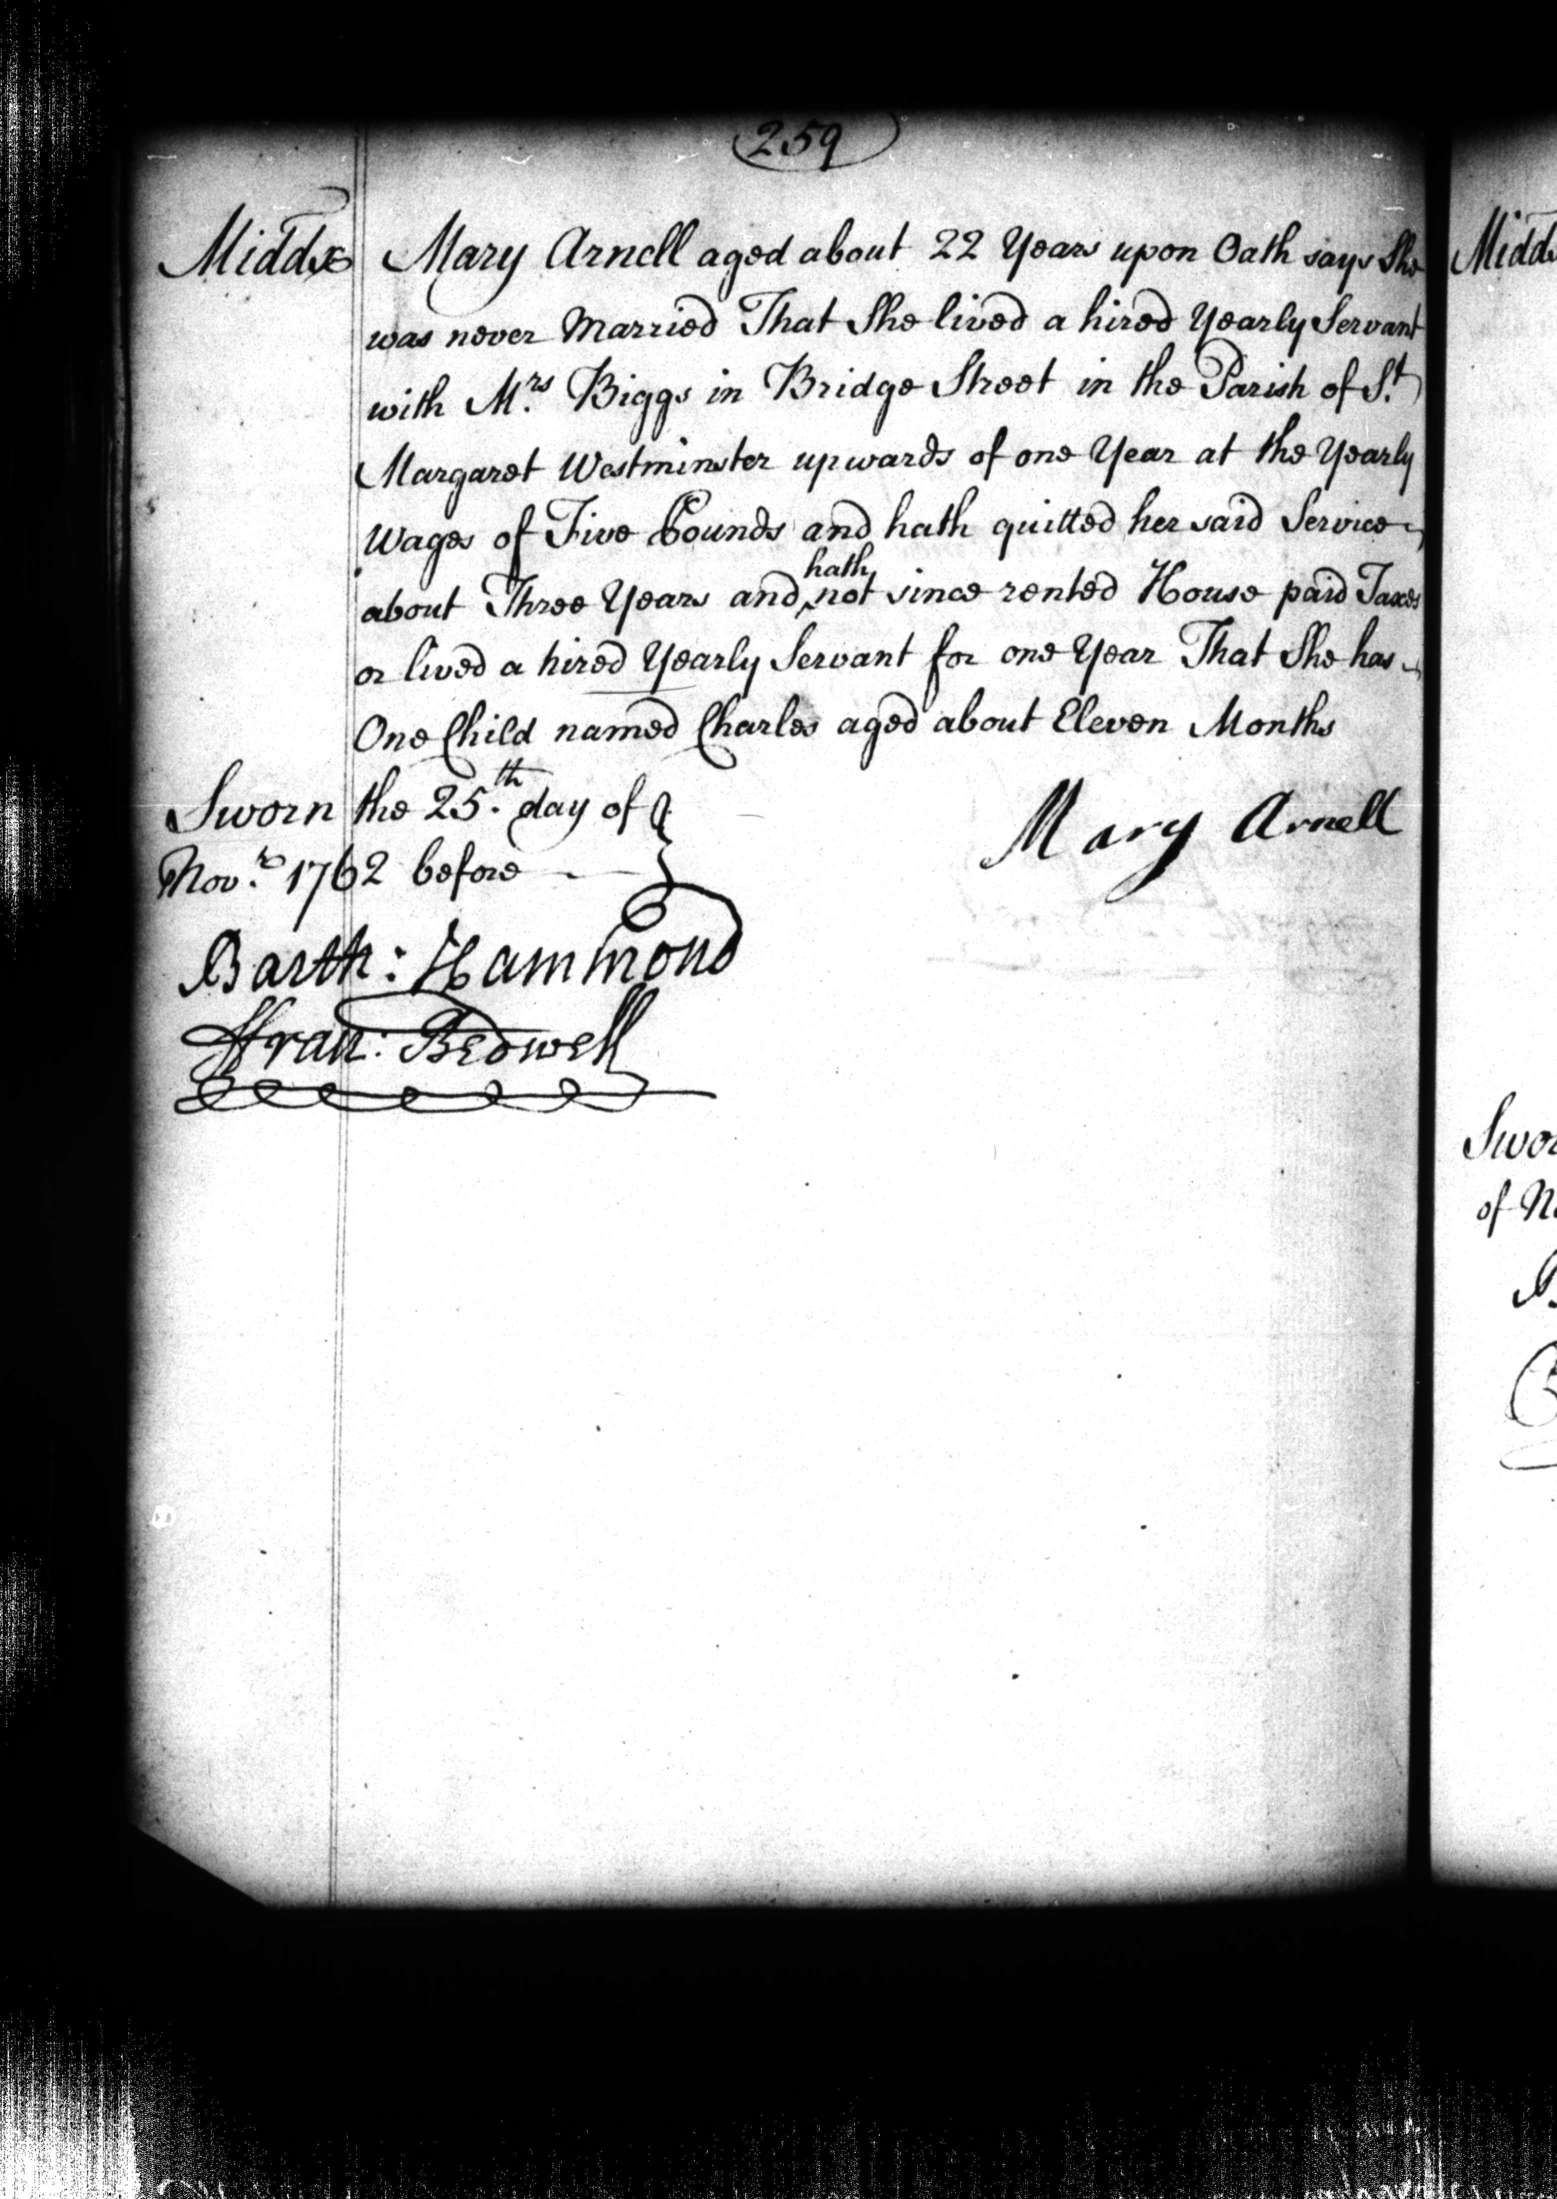 259
Middx Mary Arnell aged about 22 Years upon Oath says She
was never Married That She lived a hired Yearly Servant
with Mrs. Biggs in Bridge Street in the Parish of St.
Margaret Westminster upwards of one Year at the Yearly
Wages of Five Pounds and hath quitted her said Service
about Three Years and hath not since rented House paid Taxes
or lived a hired Yearly Servant for one Year That She has
One Child named Charles aged about Eleven Months
Sworn the 25.th day of
Novr. 1762 before
Mary Arnell
Barth: Hammond
ffran: Bedwell
Midd
Swor
of N